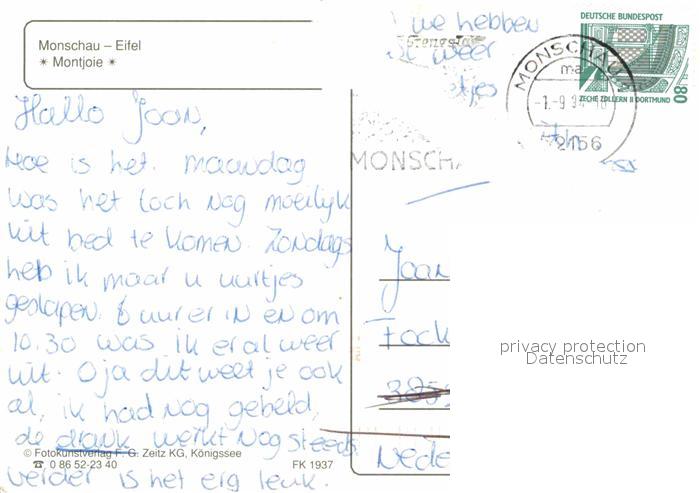 Monschau – Eifel
✶ Montjoie ✶
we hebben
weer
DEUTSCHE BUNDESPOST
ZECHE ZOLLERN II DORTMUND
80
MONSCHAU
MONSCHA
Hallo Joan,
Hoe is het. maandag
was het toch nog moeilijk
uit bed te komen. Zondags
heb ik maar u uurtjes
geslapen. 6 uur er in en om
10.30 was ik er al weer
uit. O ja dit weet je ook
al, ik had nog gebeld,
de drank werkt nog steeds
© Fotokunstverlag F. G. Zeitz KG, Königssee
☎ 0 86 52-23 40
FK 1937
verder is het erg leuk.
Joan
Fock
Nede
privacy protection
Datenschutz